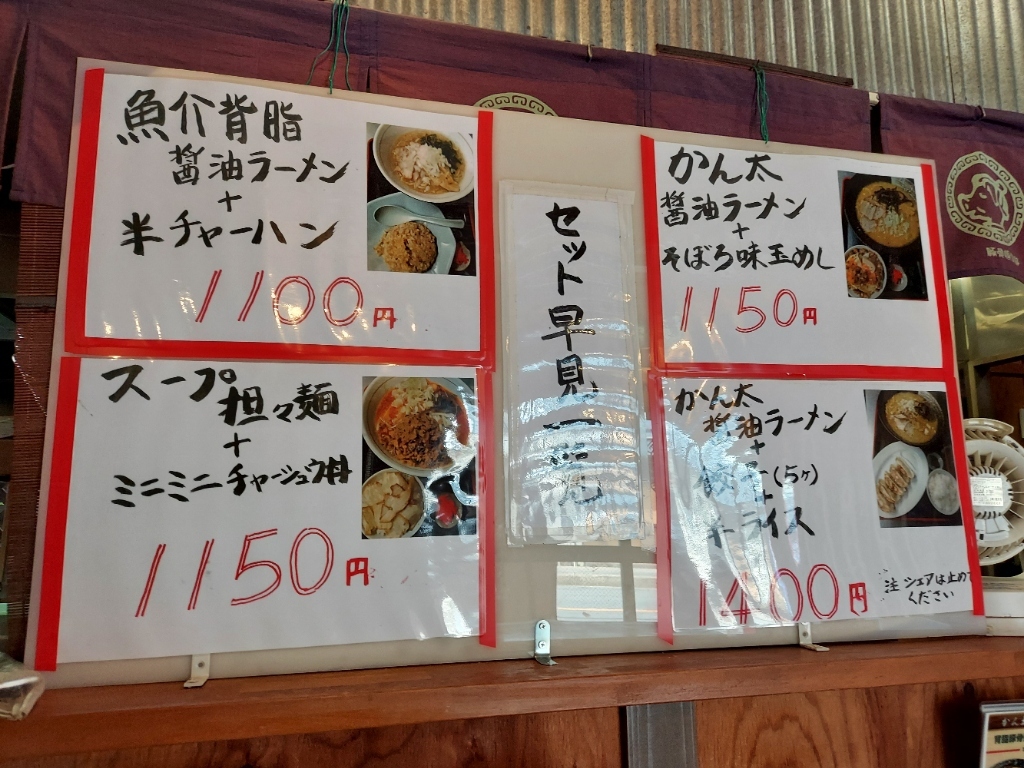 魚介背脂
醤油ラーメン
+
半チャーハン
1100円
スープ担々麺
+
ミニミニチャーシュウ丼
1150円
セット早見一覧
かん太
醤油ラーメン
+
そぼろ味玉めし
1150円
かん太
醤油ラーメン
+
(5ヶ)
+
半ライス
1400円
注 シェアは止めて
ください